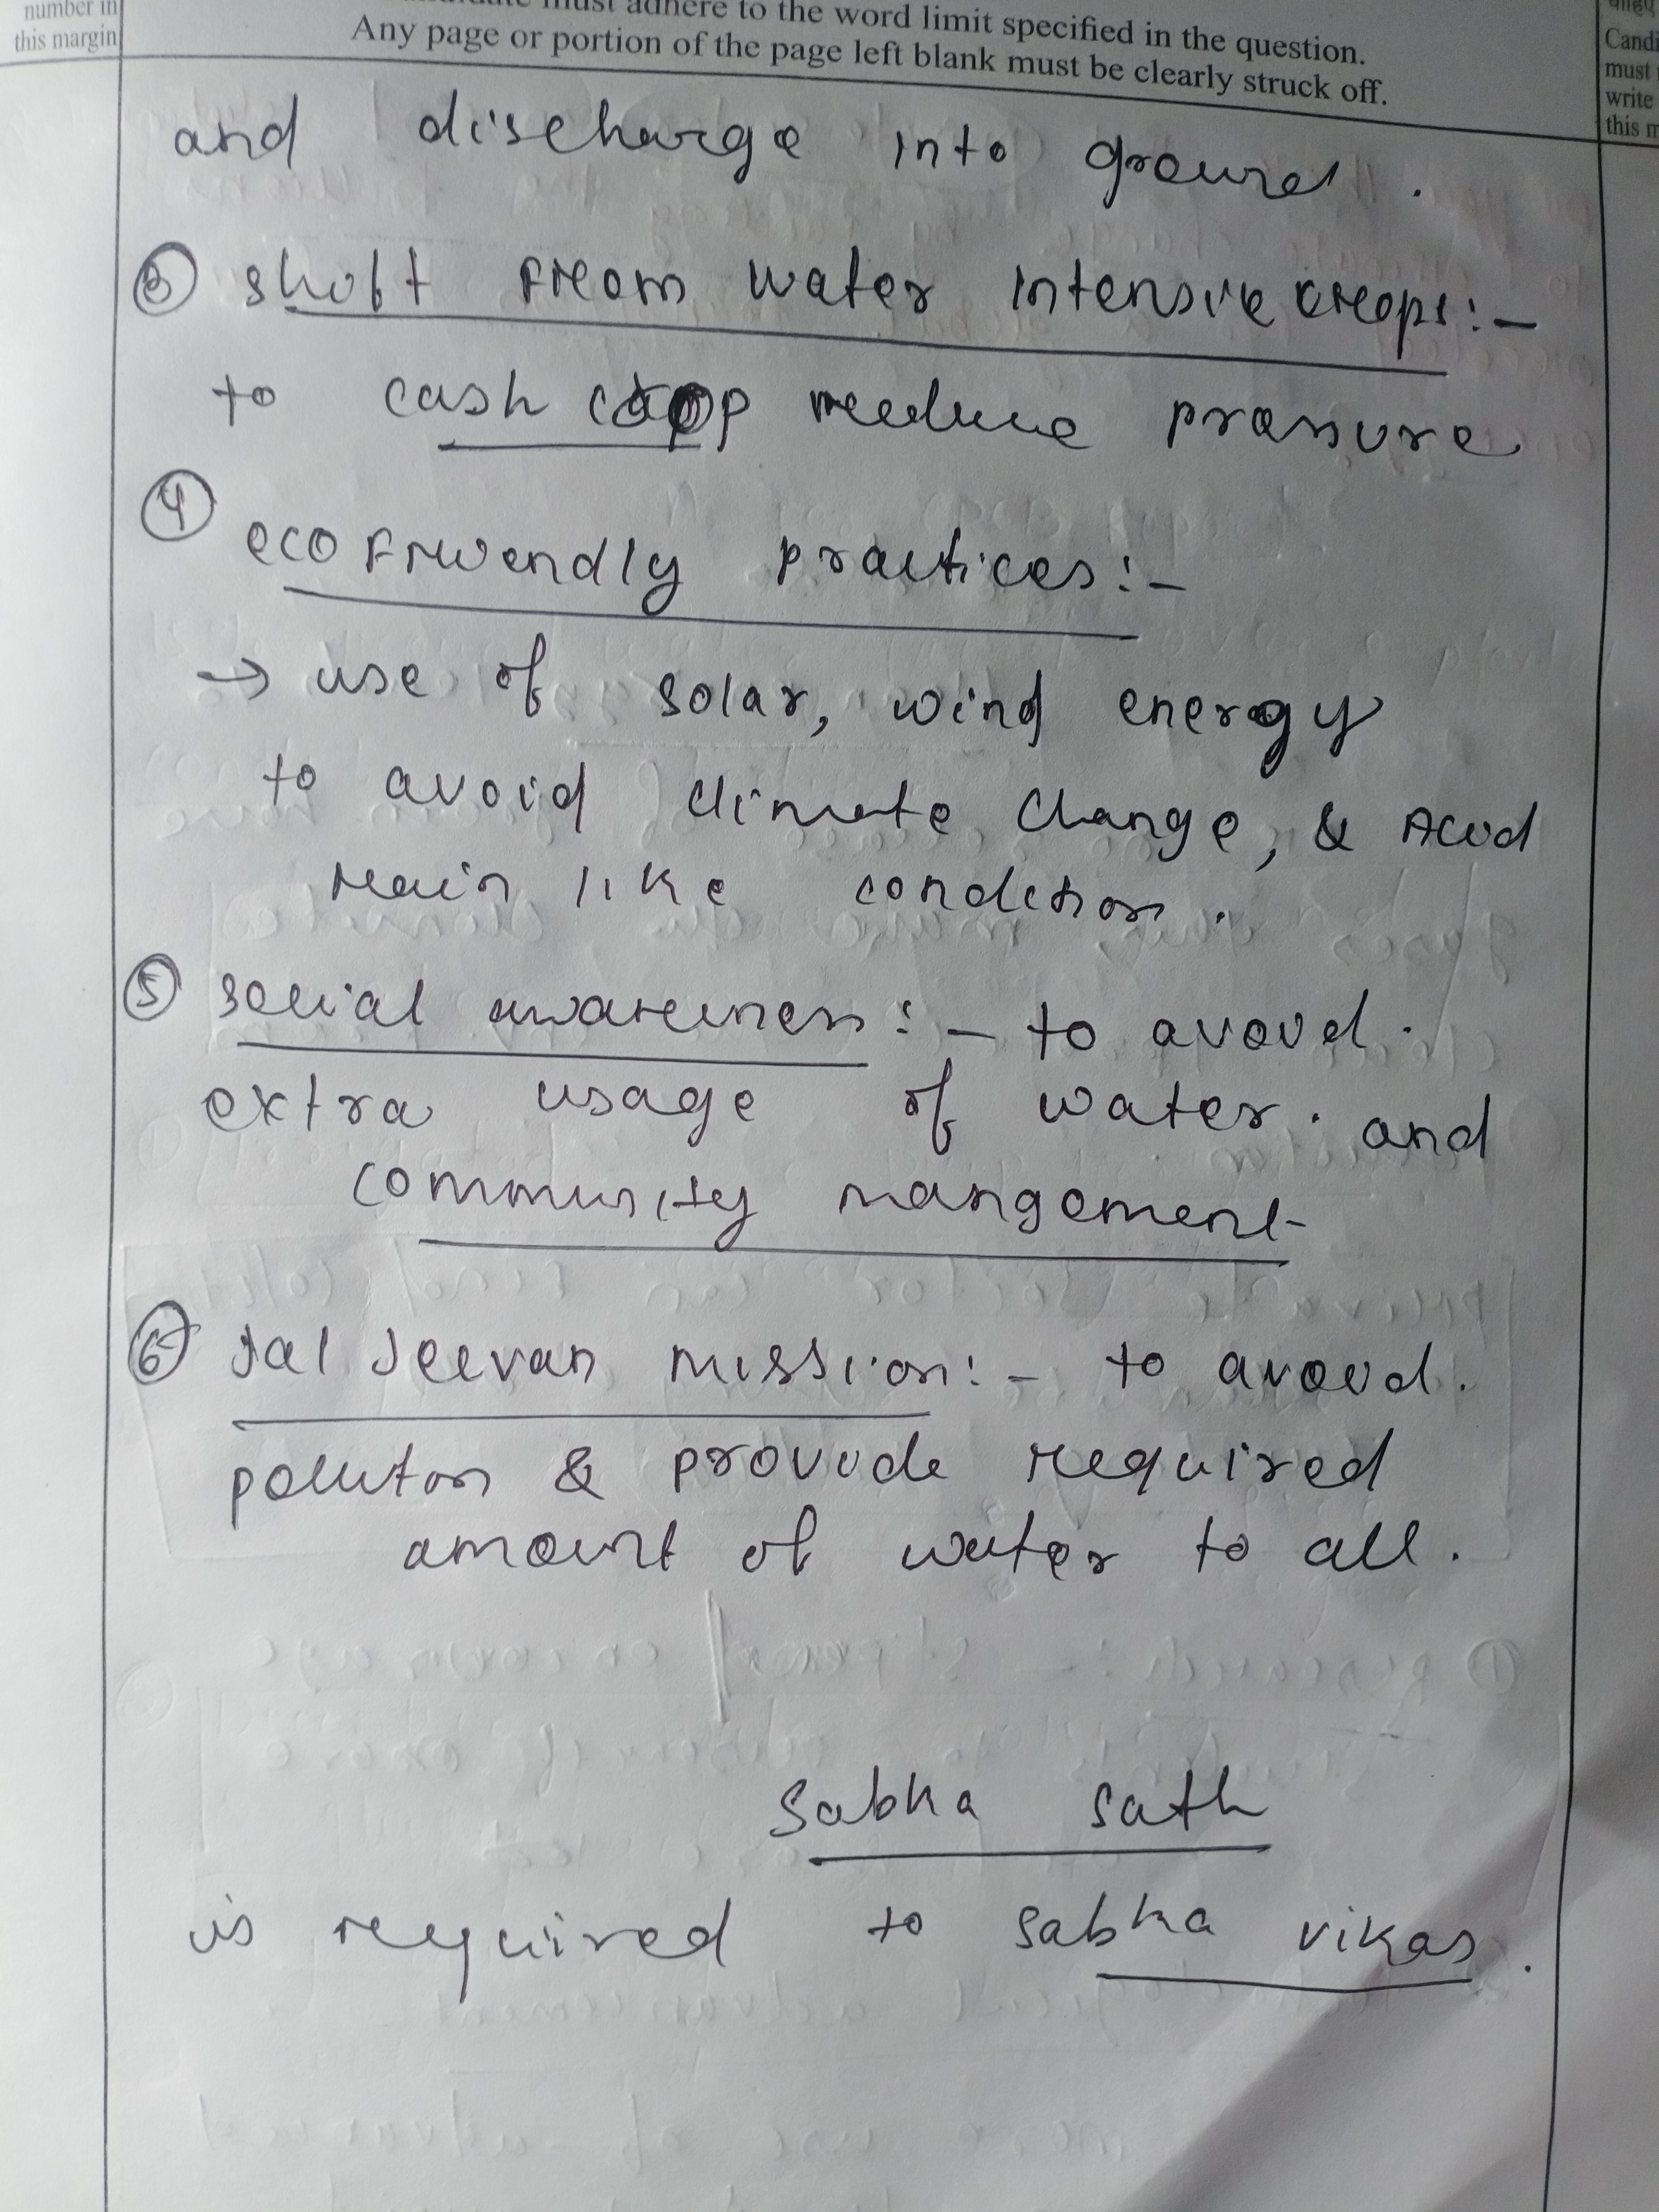 number in
this margin
must adhere to the word limit specified in the question.
Any page or portion of the page left blank must be clearly struck off.
Candi
must
write
this m
and discharge into ground.
③ shift from water intensive crops:-
to cash crop reduce pressure
④ eco friendly practices:-
→ use of solar, wind energy
to avoid climate change, & Acid
rain like condition.
⑤ social awareness:- to avoid.
extra usage of water. and
community mangement
⑥ Jal Jeevan mission:- to avoid.
polluton & provide required
amount of water to all.
Sabka sath
is required to sabka vikas.